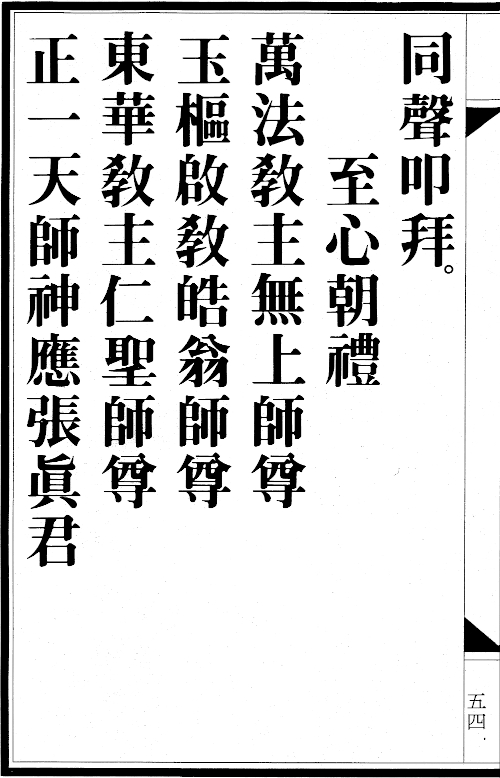 同聲叩拜。
至心朝禮
萬法教主無上師尊
玉樞啟教皓翁師尊
東華教主仁聖師尊
正一天師神應張眞君
五四